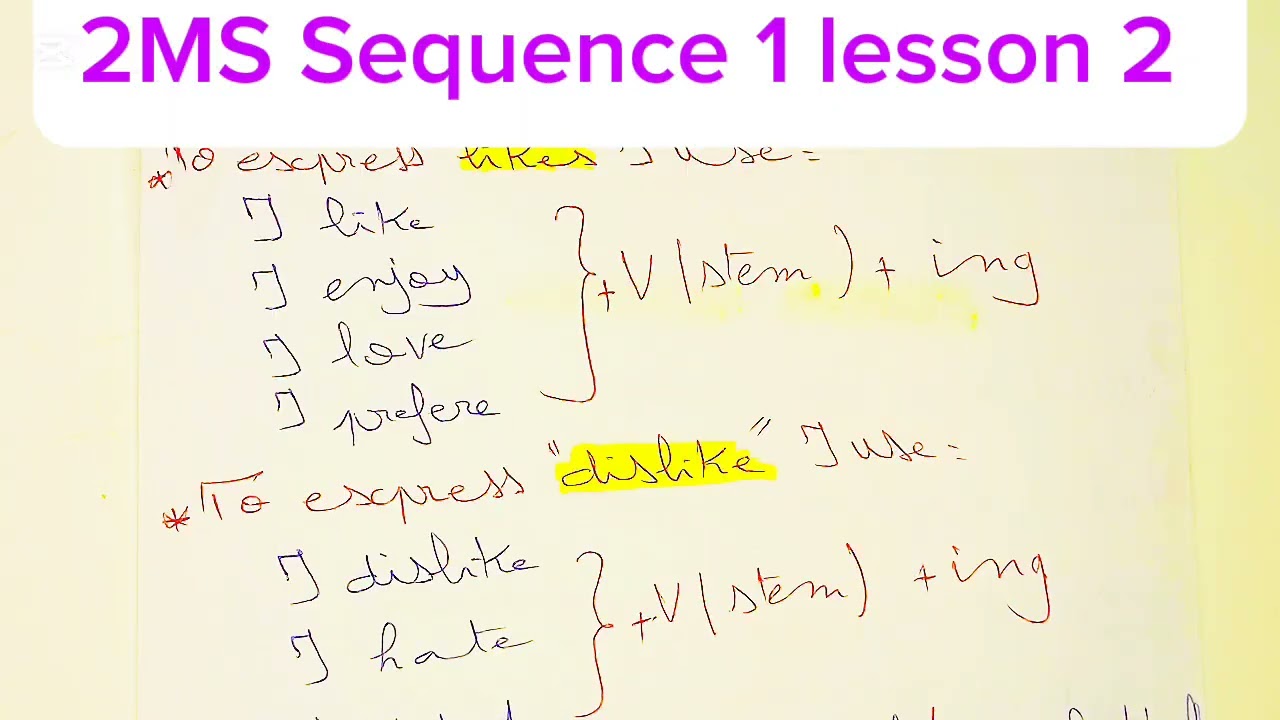 2MS Sequence 1 lesson 2
*To express likes I use:
I like
I enjoy
I love
I prefere
} + V (stem) + ing
*To express "dislike" I use:
I dislike
I hate
} + V (stem) + ing